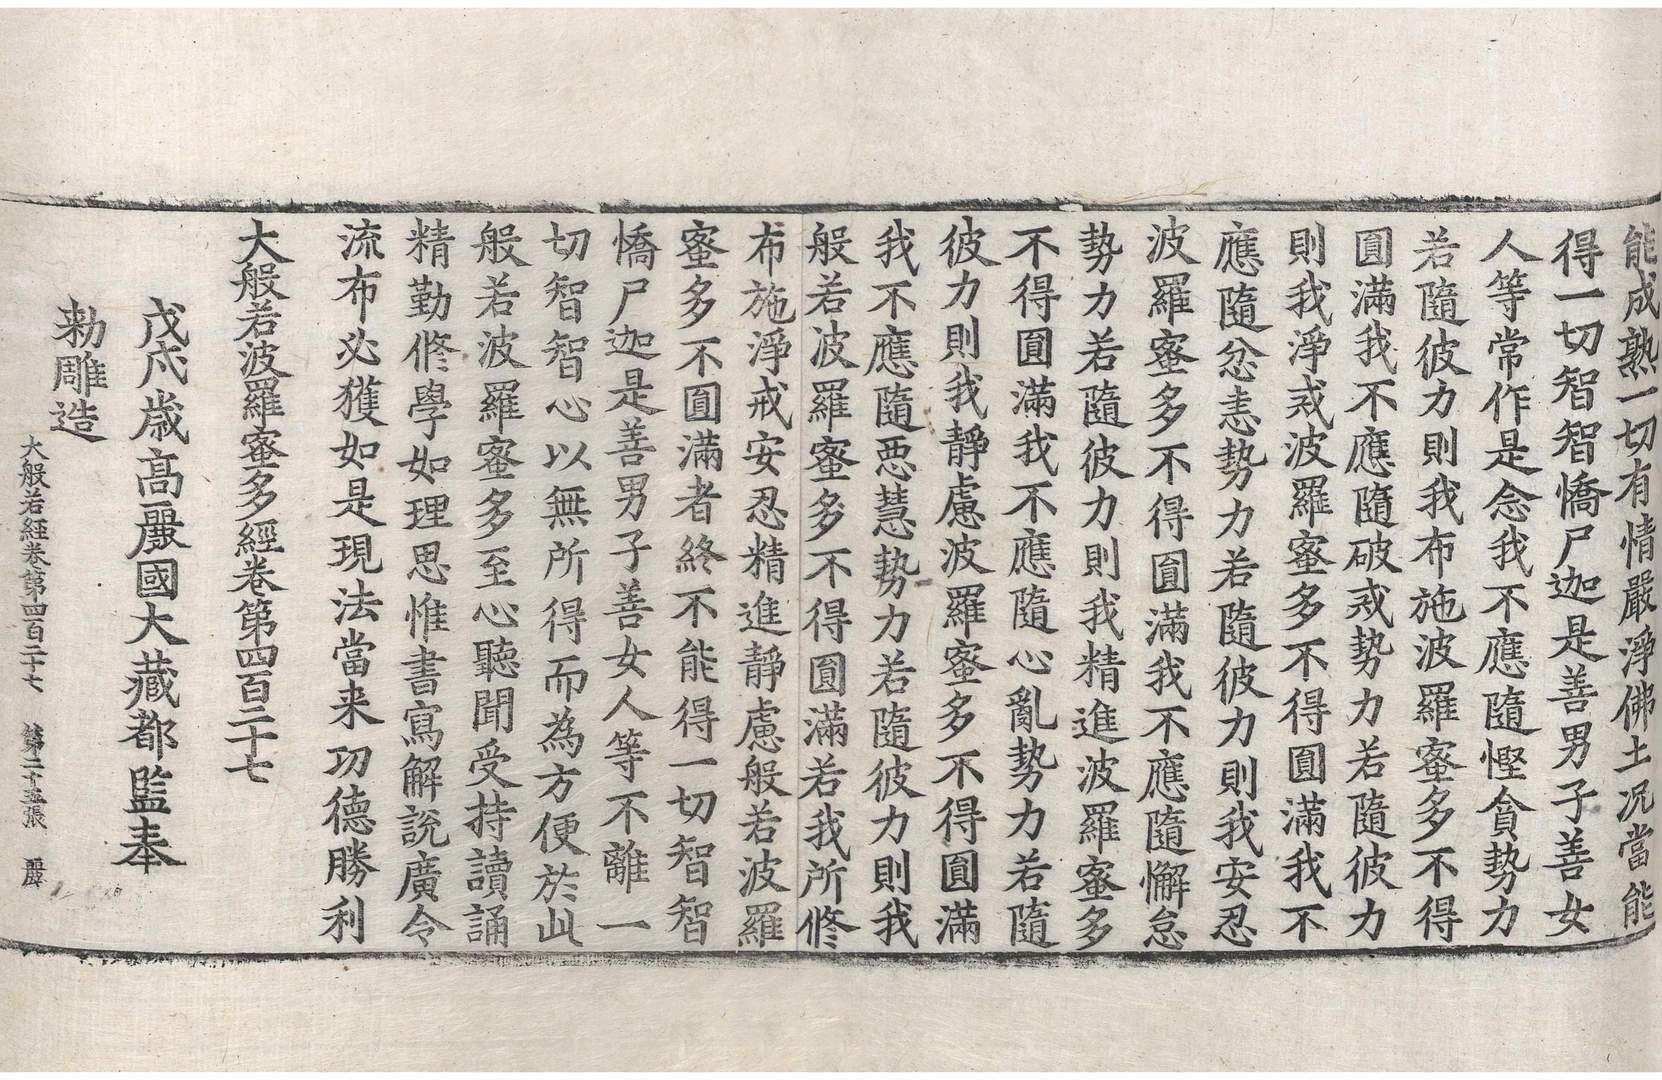 能成熟一切有情嚴淨佛土況當能
得一切智智憍尸迦是善男子善女
人等常作是念我不應隨慳貪勢力
若隨彼力則我布施波羅蜜多不得
圓滿我不應隨破戒勢力若隨彼力
則我淨戒波羅蜜多不得圓滿我不
應隨忿恚勢力若隨彼力則我安忍
波羅蜜多不得圓滿我不應隨懈怠
勢力若隨彼力則我精進波羅蜜多
不得圓滿我不應隨心亂勢力若隨
彼力則我靜慮波羅蜜多不得圓滿
我不應隨惡慧勢力若隨彼力則我
般若波羅蜜多不得圓滿若我所修
布施淨戒安忍精進靜慮般若波羅
蜜多不圓滿者終不能得一切智智
憍尸迦是善男子善女人等不離一
切智智心以無所得而為方便於此
般若波羅蜜多至心聽聞受持讀誦
精勤修學如理思惟書寫解說廣令
流布必獲如是現法當来功德勝利
大般若波羅蜜多經卷第四百二十七
戊戌歲高麗國大藏都監奉
勑雕造
大般若經卷第四百二十七 第二十五張 麗